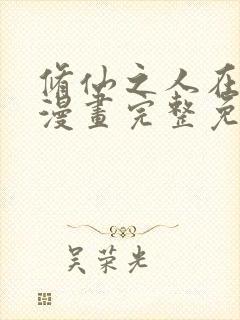 脩仙之人在
漫畫完整免
吴荣光